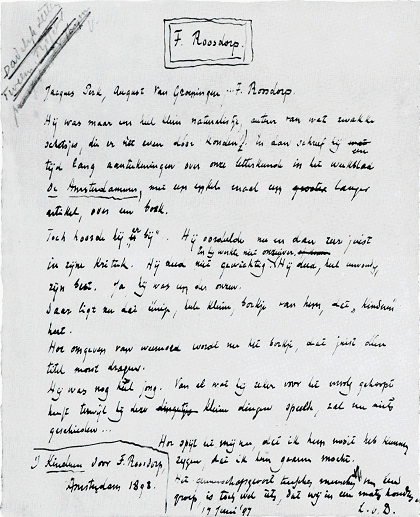 Dadelijk zetten
F. Roosdorp.
Jacques Perk, August Van Groeningen, .. F. Roosdorp.
Hij was maar een heel klein naturalistje, auteur van wat zwakke
schetsjes, die er niet even door konden. En dan schreef hij een
tijd lang aanteekeningen over onze letterkunde in het weekblad
De Amsterdammer, met een enkele maal een grooter langer
artikel, over een boek.
Toch hoorde hij "er bij". Hij oordeelde nu en dan zeer juist
in zijne kritiek. Hij deed niet gewichtig. En hij werkte niet onzuiver. Hij deed, heel eenvoudig,
zijn best. Ja, hij was een der onzen.
Daar ligt nu dat eenige, heel kleine, boekje van hem, dat "Kinderen"
heet.
Hoe omgeven van weemoed wordt nu het boekje, dat juist dien
titel moest dragen.
Hij was nog heel jong. Van al wat hij zeker voor het vervolg gehoopt
heeft terwijl hij deze kleine dingen speelde, zal nu niets
geschieden ...
Hoe spijt het mij nu, dat ik hem nooit heb kunnen
zeggen, dat ik hem gaarne mocht.
Het gemeenschapsgevoel tusschen menschen van een
groep is toch wel iets, dat wij in eere moeten houden.
17 Juni '97 L. v. D.
1) Kinderen door F. Roosdorp,
Amsterdam 1898.